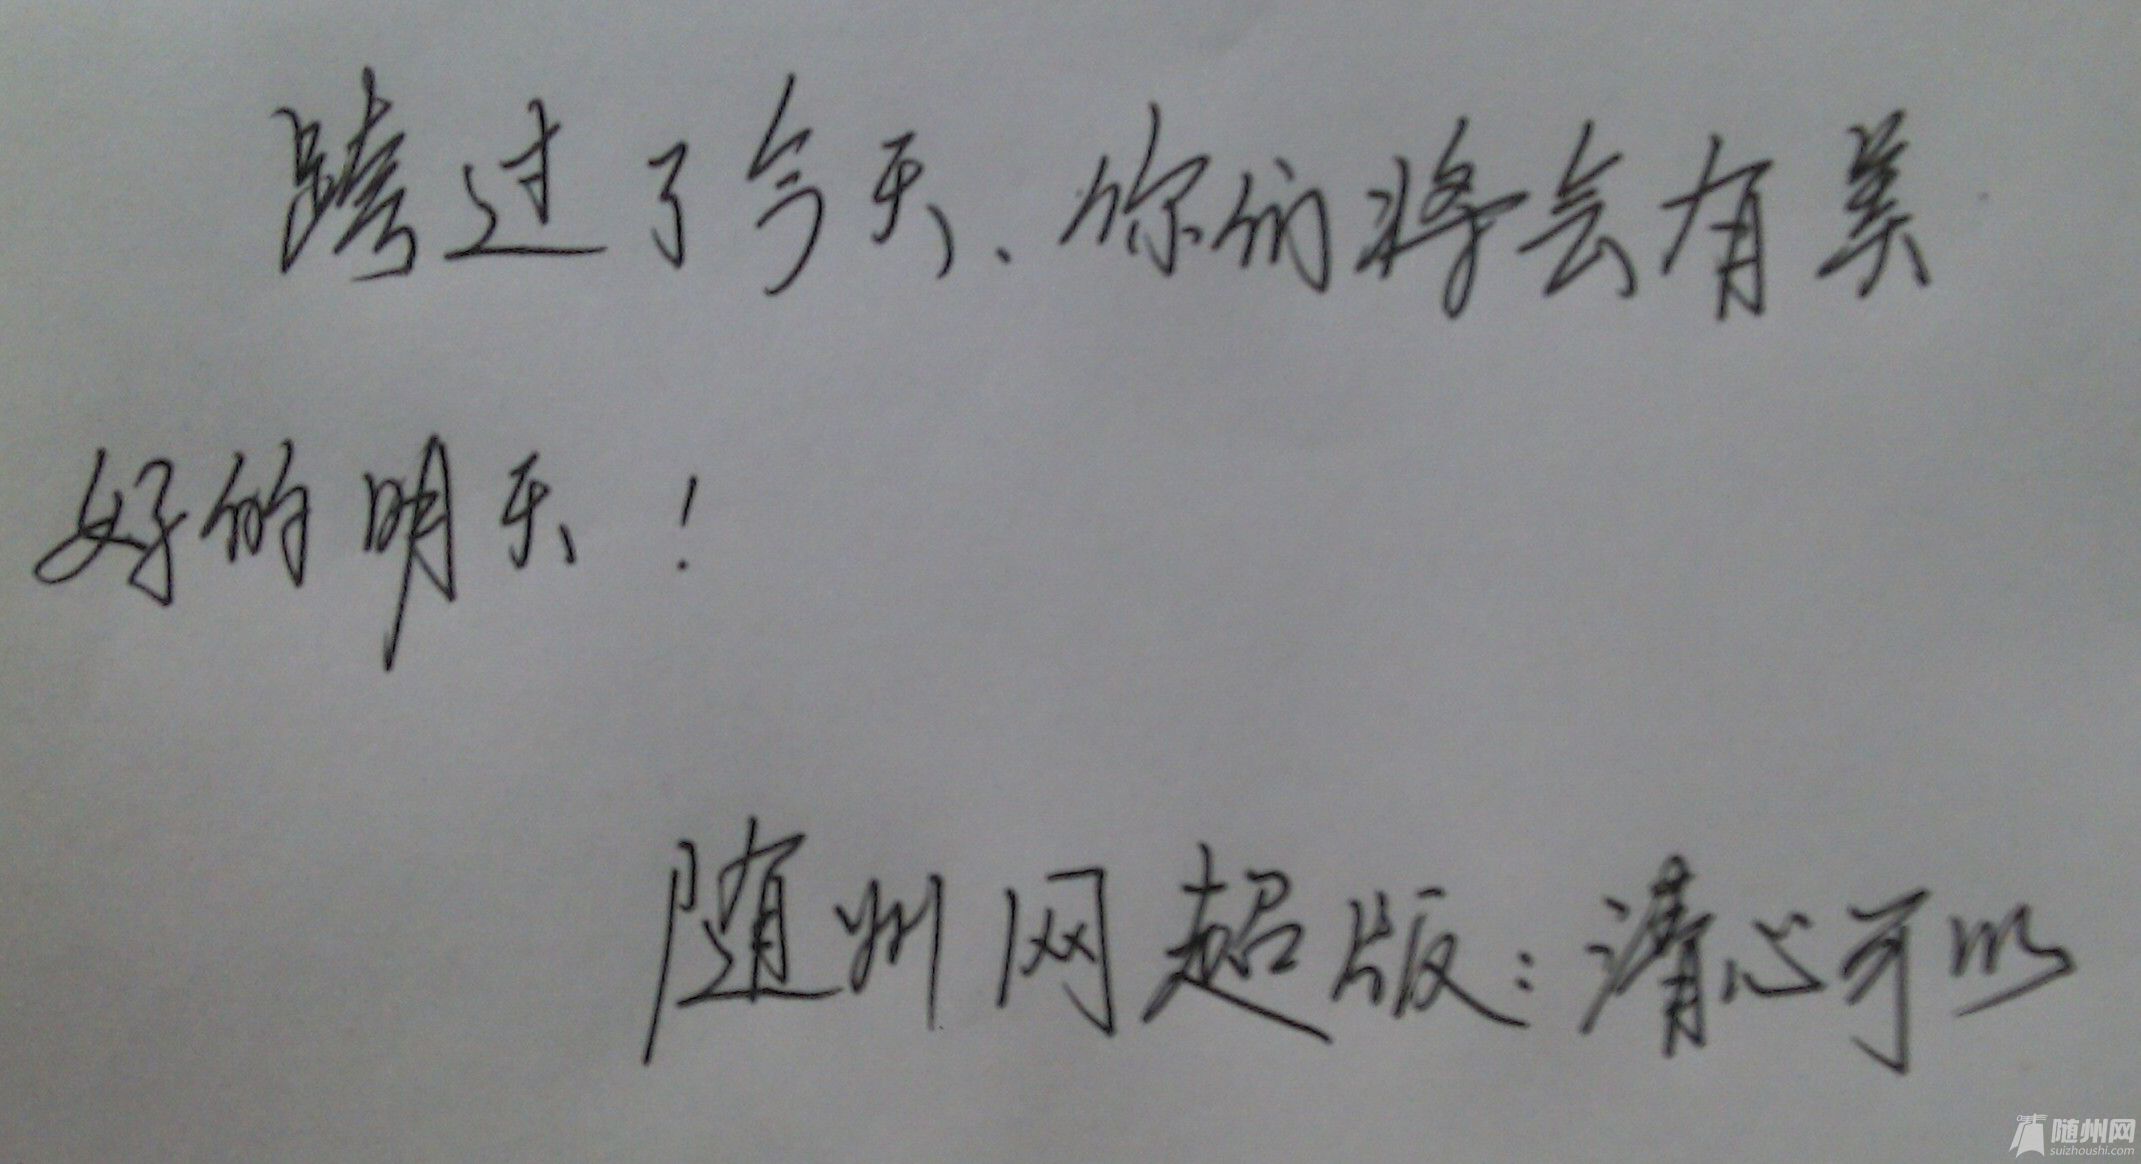 跨过了今天、你们将会有美
好的明天！
随州网超版：清心可以
随州网
suizhoushi.com